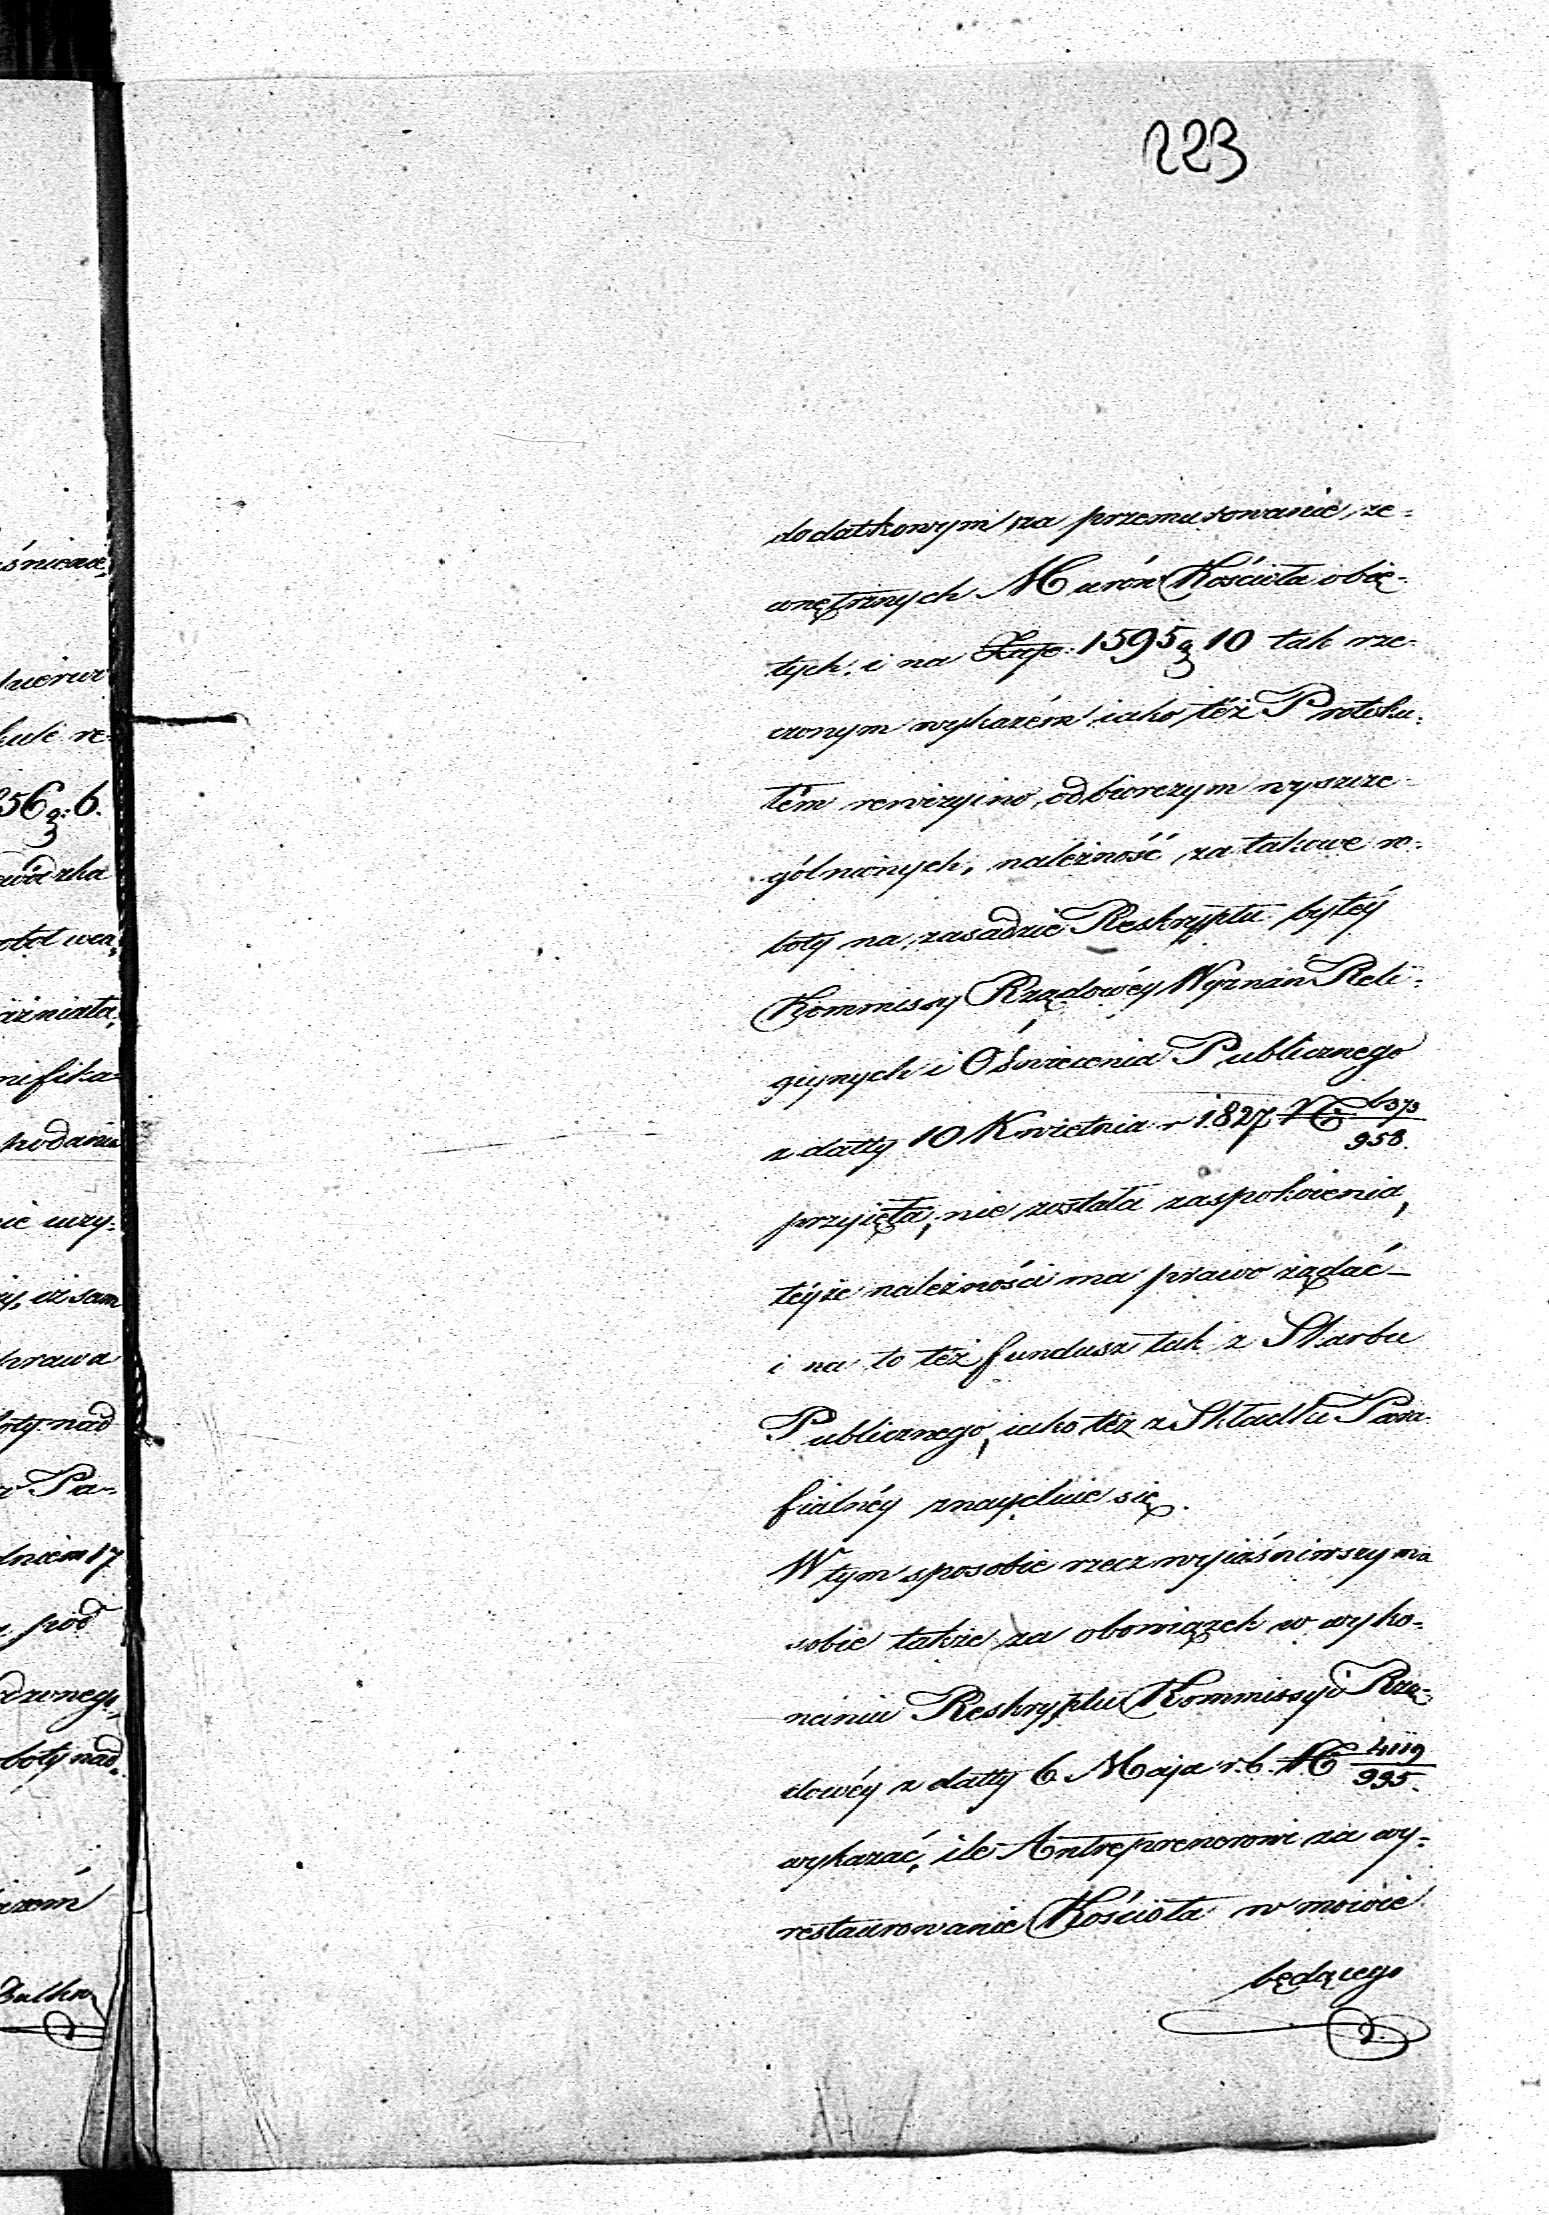 223
dodatkowym za przemurowanie ze=
wnętrznych Murów Kościoła obię=
tych, i na Złp. 1595 g 10 tak rze=
czonym wykazem iako też Protoku=
łem rewizyino, odbiorczym wyszcze=
gólnionych, należność za takowe ro=
boty na zasadzie Reskryptu byłéy
Kommissy Rządowéy Wyznań Reli=
giynych i Oświecenia Publicznego
z datty 10 Kwietnia r 1827 N
958.
przyięta, nie została zaspokoienia,
téyże należności ma prawo żądać
i na to też fundusz tak z Skarbu
Publicznego, iako też z Składki Para=
fialnéy znayduie się.
W tym sposobie rzecz wyiaśniwszy ma
sobie także za obowiązek w wyko=
naniu Reskryptu Kommissyi Rzą=
dowéy z datty 6 Maja r. b. N 4119
995.
wykazać, ile Antreprenerowi za wy=
restaurowanie Kościoła w mowie
będącego
śnieni
kule re=
256 g. 6.
nifika=
podaniu
nie uzy=
iż sam
prawa
boty nad
Pa=
dniem 17
pod
boty nad